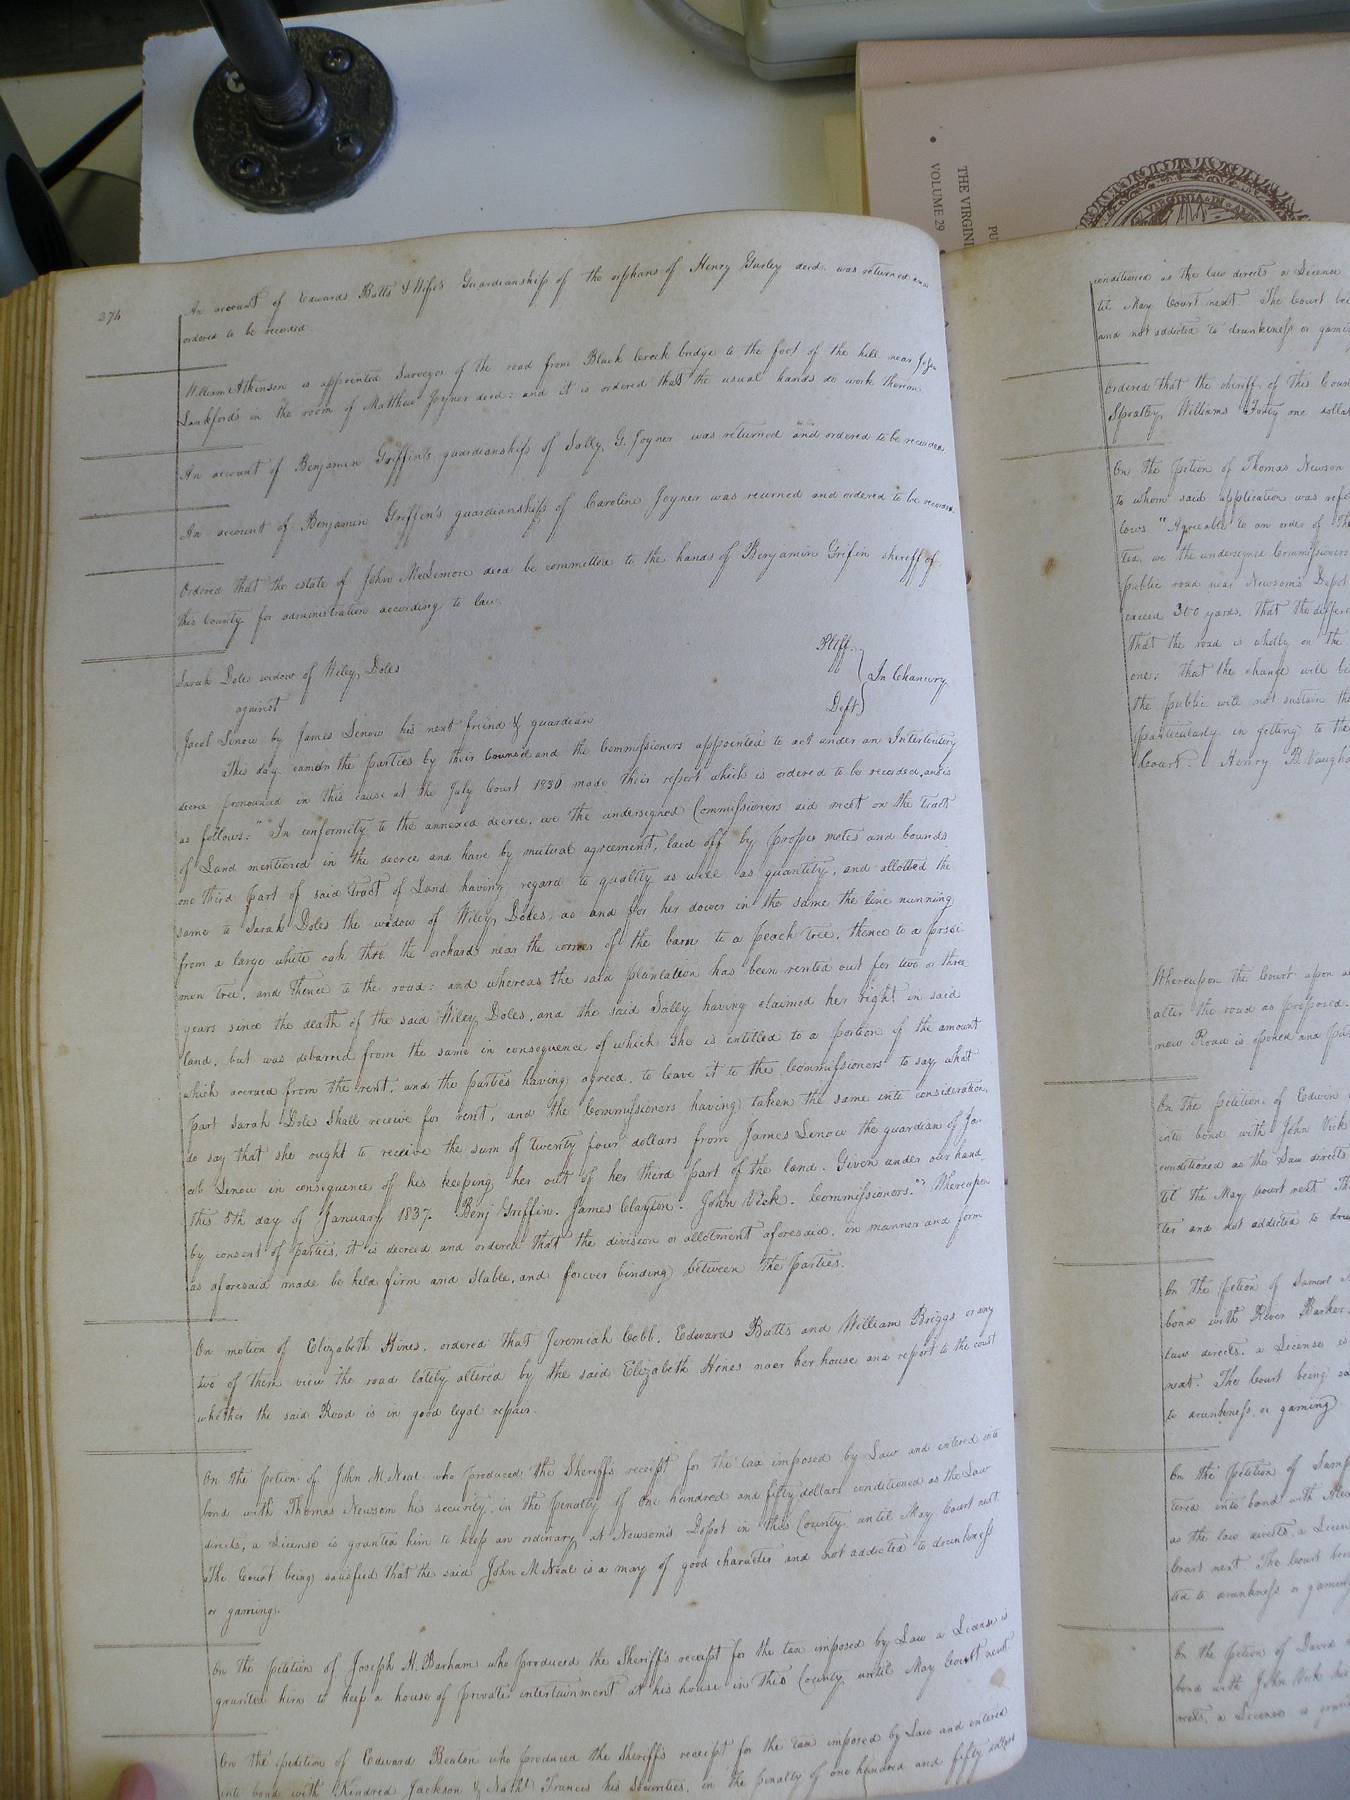 THE VIRGINI
VOLUME 29
PU
VIRGINIA IN A
274
An account of Edwards Butts & Wife's Guardianship of the orphans of Henry Gurley decd. was returned and
ordered to be recorded
William Atkinson is appointed Surveyor of the road from Black Creek bridge to the foot of the hill near
Lankford's in the room of Matthew Joyner decd: and it is ordered that the usual hands do work thereon
An account of Benjamin Griffin's guardianship of Sally G. Joyner was returned and ordered to be recorded
An account of Benjamin Griffin's guardianship of Caroline Joyner was returned and ordered to be recorded.
Ordered that the estate of John McLemore decd be committed to the hands of Benjamin Grifin sheriff of
this County for administration according to law.
Sarah Doles widow of Wiley Doles Pltff
against In Chancery
Jacob Lenow by James Lenow his next friend & guardian Deft
This day came the parties by their Council and the Commissioners appointed to act under an Interlocutory
decree pronounced in this cause at the July Court 1836 made their report which is ordered to be recorded, and is
as follows: "In conformity to the annexed decree, we the undersigned Commissioners did meet on the tract
of Land mentioned in the decree and have by mutual agreement, laid off by proper metes and bounds
one third part of said Tract of Land having regard to quality as well as quantity, and allotted the
same to Sarah Doles the widow of Wiley Doles, as and for her dower in the same the line running
from a large white oak thro. the orchard near the corner of the barn to a peach tree, thence to a prosi
mon tree, and thence to the road: and whereas the said plantation has been rented out for two or three
years since the death of the said Wiley Doles, and the said Sally having claimed her right in said
land, but was debarred from the same in consequence of which she is entitled to a portion of the amount
which accrued from the rent, and the parties having agreed, to leave it to the Commissioners to say what
part Sarah Doles shall receive for rent, and the Commissioners having taken the same into consideration,
do say that she ought to receive the sum of twenty four dollars from James Lenow the guardian of Ja-
cob Lenow in consequence of his keeping her out of her third part of the land. Given under our hand
this 5th day of January 1837. Benj Griffin. James Clayton. John Vick. Commissioners." Whereupon
by consent of parties, it is decreed and ordered that the division or allotment aforesaid, in manner and form
as aforesaid made be held firm and stable, and forever binding between the parties.
On motion of Elizabeth Hines, ordered that Jeremiah Cobb, Edwards Butts and William Briggs or any
two of them view the road lately altered by the said Elizabeth Hines naer her house and report to the court
whether the said Road is in good legal repair.
On the petion of John McNeal who produced the Sheriff's receipt for the tax imposed by Law and entered into
bond with Thomas Newsom his security, in the penalty of one hundred and fifty dollars conditioned as the Law
directs, a License is granted him to keep an ordinary at Newsom's Depot in this County until May Court next.
The Court being satisfied that the said John McNeal is a may of good character and not addicted to drunkness
or gaming.
On the petition of Joseph H. Barham who produced the Sheriff's receipt for the tax imposed by Law a License is
granted him to keep a house of private entertainment at his house in this County until May Court next
On the petition of Edward Beaton who produced the Sheriff's receipt for the tax imposed by Law and entered
into bond with Kindred Jackson & Nathl Frances his Securities, in the penalty of one hundred and fifty dollars
conditioned as the law directs a License
til May Court next The Court bei
and not addicted to drunkeness or gami
Ordered that the sheriff of this Coun
Spratley Williams Forty one dolla
On the petion of Thomas Newson
to whom said application was refe
lows "Agreeable to an order of The
ted, we the undersigned Commissioners
public road near Newsom's Depot
exceed 300 yards, that the differe
that the road is wholly on the
one; that the change will be
the public will not sustain the
particularly in getting to the
Court. Henry B. Vaugha
Whereupon the Court upon
alter the road as proposed.
new Road is opened and
On the petition of Edwin
into bond with John Vick
conditioned as the Law directs
til the May Court next Th
ter and not addicted to dru
On the petion of Samuel
bond with River Barker
law directs, a License is
next. The Court being sa
to drunkness or gaming
On the petition of Samp
tered into bond with Alex
as the law directs, a Licen
Court next The Court bei
ted to drunkness or gaming
On the petion of David
bond with John Vick his
rects, a License is gran